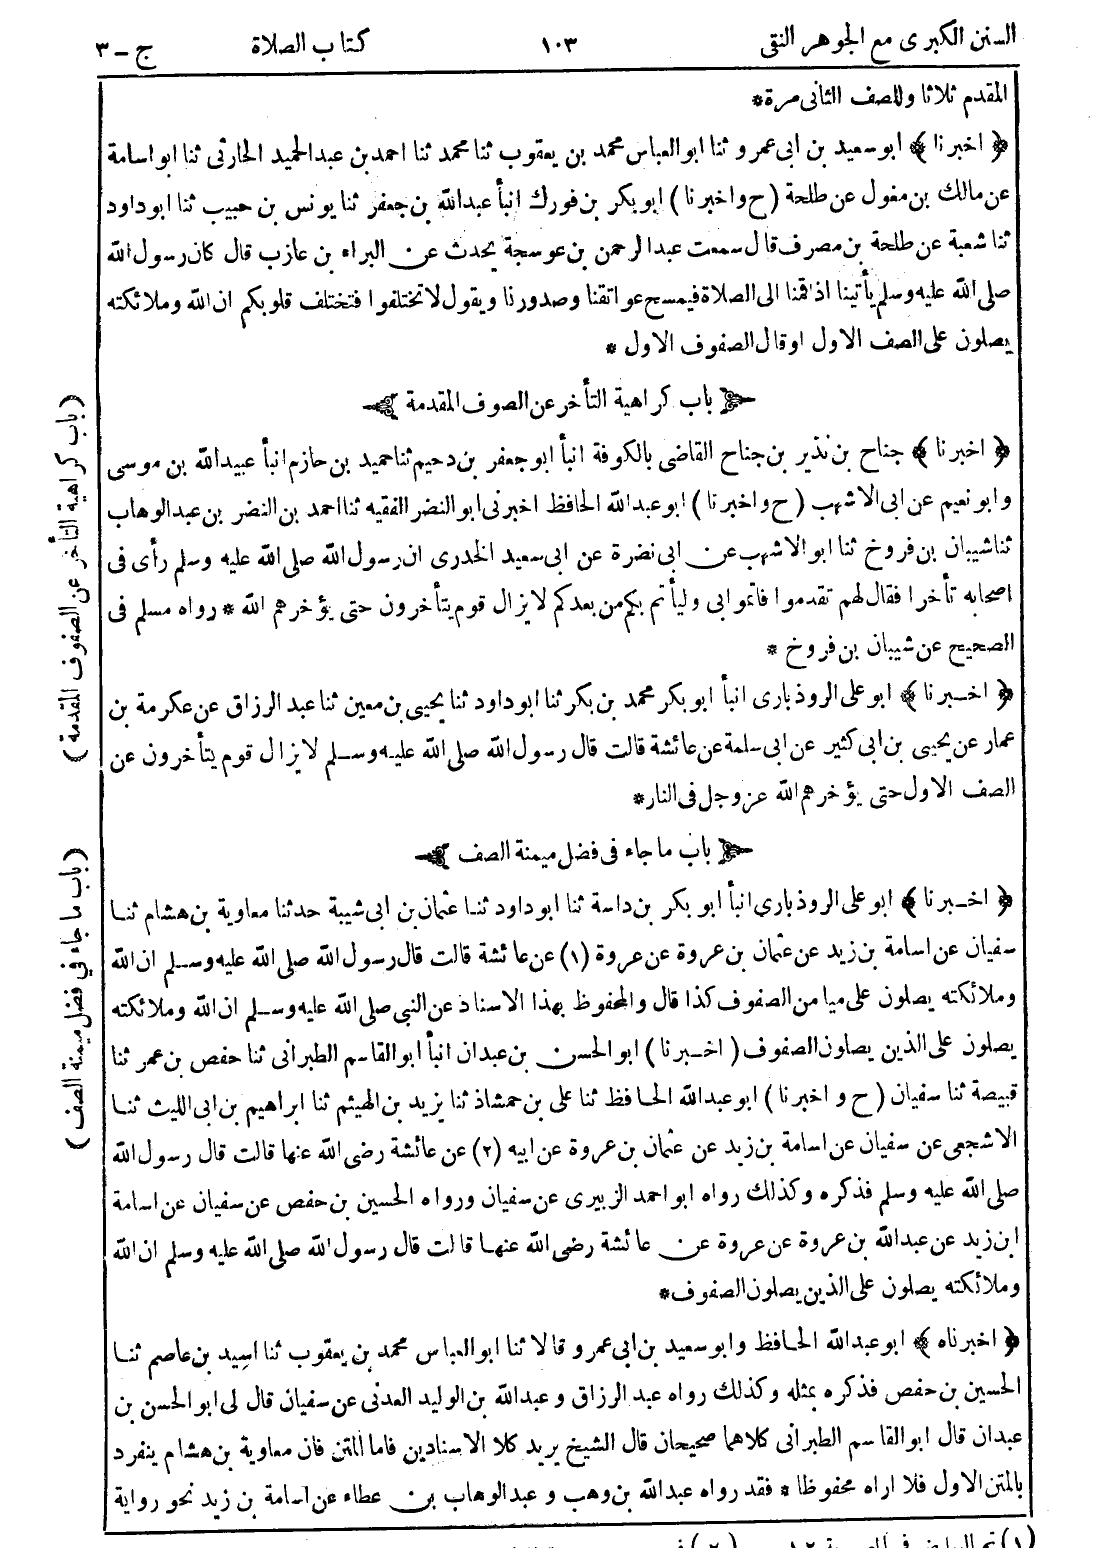 السنن الكبرى مع الجوهر النقى ١٠٣ كتاب الصلاة ج - ٣
المقدم ثلاثا وللصف الثانى مرة*
﴿ اخبرنا ﴾ ابو سعيد بن ابى عمرو ثنا ابو العباس محمد بن يعقوب ثنا محمد ثنا احمد بن عبد الحميد الحارثى ثنا ابو اسامة
عن مالك بن مغول عن طلحة ( ح و اخبرنا ) ابو بكر بن فورك انبأ عبد الله بن جعفر ثنا يونس بن حبيب ثنا ابو داود
ثنا شعبة عن طلحة بن مصرف قال سمعت عبد الرحمن بن عوسجة يحدث عن البراء بن عازب قال كان رسول الله
صلى الله عليه وسلم يأتينا اذا قمنا الى الصلاة فيمسح عواتقنا وصدورنا ويقول لا تختلفوا فتختلف قلوبكم ان الله وملائكته
يصلون على الصف الاول اوقال الصفوف الاول *
باب كراهية التأخر عن الصوف المقدمة
﴿ اخبرنا ﴾ جناح بن نذير بن جناح القاضى بالكوفة انبأ ابو جعفر بن دحيم ثنا حميد بن حازم انبأ عبيد الله بن موسى
وابو نعيم عن ابى الاشهب ( ح و اخبرنا ) ابو عبد الله الحافظ اخبرنى ابو النضر الفقيه ثنا احمد بن النضر بن عبد الوهاب
ثنا شيبان بن فروخ ثنا ابو الاشهب عن ابى نضرة عن ابى سعيد الخدرى ان رسول الله صلى الله عليه وسلم رأى فى
اصحابه تأخرا فقال لهم تقدموا فاتموا بى وليأتم بكم من بعدكم لا يزال قوم يتأخرون حتى يؤخرهم الله * رواه مسلم فى
الصحيح عن شيبان بن فروخ *
﴿ اخبرنا ﴾ ابو على الروذبارى انبأ ابو بكر محمد بن بكر ثنا ابو داود ثنا يحيى بن معين ثنا عبد الرزاق عن عكرمة بن
عمار عن يحيى بن ابى كثير عن ابى سلمة عن عائشة قالت قال رسول الله صلى الله عليه وسلم لا يزال قوم يتأخرون عن
الصف الاول حتى يؤخرهم الله عز وجل فى النار*
باب ما جاء فى فضل ميمنة الصف
﴿ اخبرنا ﴾ ابو على الروذبارى انبأ ابو بكر بن داسة ثنا ابو داود ثنا عثمان بن ابى شيبة حدثنا معاوية بن هشام ثنا
سفيان عن اسامة بن زيد عن عثمان بن عروة عن عروة (١) عن عائشة قالت قال رسول الله صلى الله عليه وسلم ان الله
وملائكته يصلون على ميامن الصفوف كذا قال والمحفوظ بهذا الاسناد عن النبى صلى الله عليه وسلم ان الله وملائكته
يصلون على الذين يصلون الصفوف ( اخبرنا ) ابو الحسن بن عبدان انبأ ابو القاسم الطبرانى ثنا حفص بن عمر ثنا
قبيصة ثنا سفيان ( ح و اخبرنا ) ابو عبد الله الحافظ ثنا على بن حمشاذ ثنا يزيد بن الهيثم ثنا ابراهيم بن ابى الليث ثنا
الاشجعى عن سفيان عن اسامة بن زيد عن عثمان بن عروة عن ابيه (٢) عن عائشة رضى الله عنها قالت قال رسول الله
صلى الله عليه وسلم فذكره وكذلك رواه ابو احمد الزبيرى عن سفيان ورواه الحسين بن حفص عن سفيان عن اسامة
ابن زيد عن عبد الله بن عروة عن عروة عن عائشة رضى الله عنها قالت قال رسول الله صلى الله عليه وسلم ان الله
وملائكته يصلون على الذين يصلون الصفوف*
﴿ اخبرناه ﴾ ابو عبد الله الحافظ وابو سعيد بن ابى عمرو قالا ثنا ابو العباس محمد بن يعقوب ثنا اسيد بن عاصم ثنا
الحسين بن حفص فذكره بمثله وكذلك رواه عبد الرزاق وعبد الله بن الوليد العدنى عن سفيان قال لى ابو الحسن بن
عبدان قال ابو القاسم الطبرانى كلاهما صحيحان قال الشيخ يريد كلا الاسنادين فاما المتن فان معاوية بن هشام ينفرد
بالمتن الاول فلا اراه محفوظا * فقد رواه عبد الله بن وهب وعبد الوهاب بن عطاء عن اسامة بن زيد نحو رواية
( باب كراهية التأخر عن الصفوف المقدمة )
( باب ما جاء في فضل ميمنة الصف )